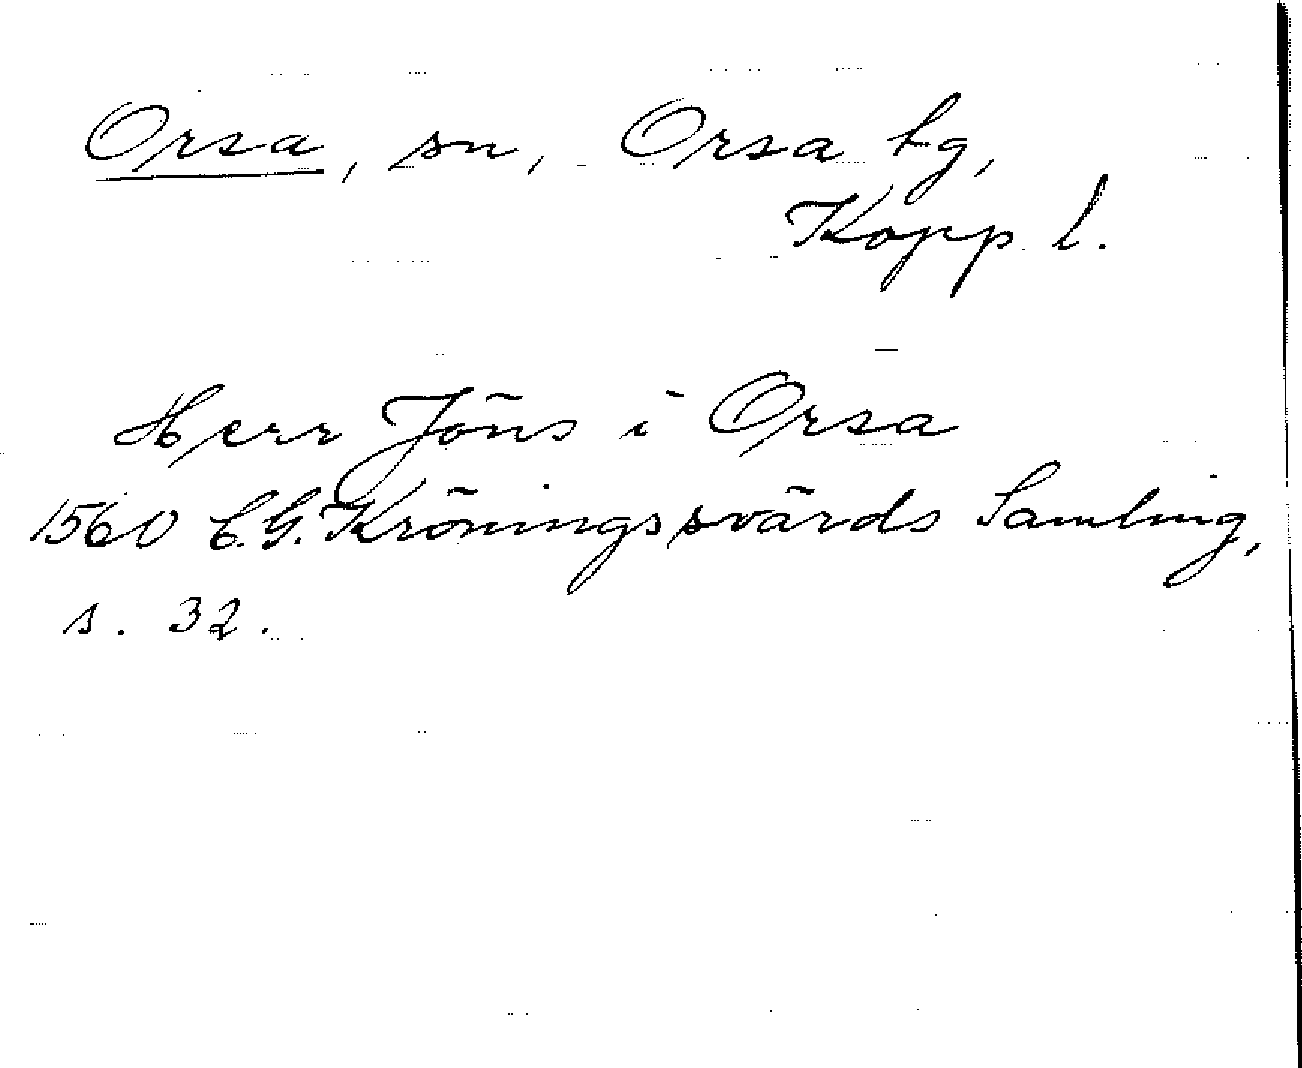 Orsa, sn, Orsa tg,
Kopp. l.
Herr Jöns i Orsa
1560 C.G. Kröningssvärds Samling,
s. 32.